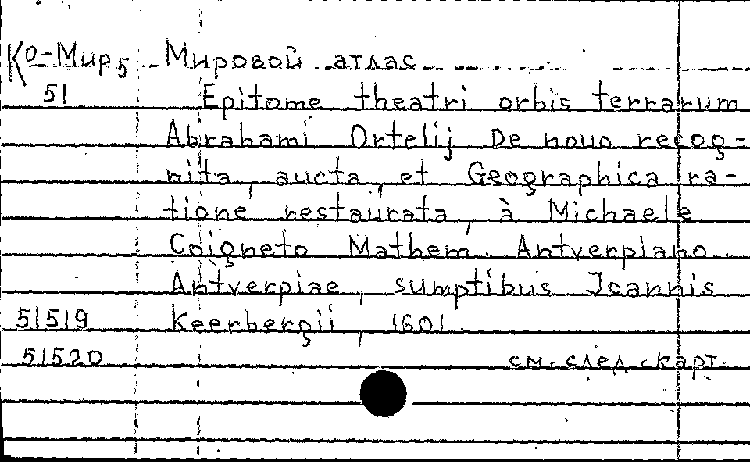 Ко-Мир5 Мировой атлас
51 Epitome theatri orbis terrarum
Abrahami Ortelij De nouo recog-
nita, aucta, et Geographica ra-
tione restaurata, à Michaele
Coigneto Mathem. Antverpiano
Antverpiae, sumptibus Ioannis
51519 Keerbergii, 1601
51520 см. след. карт.